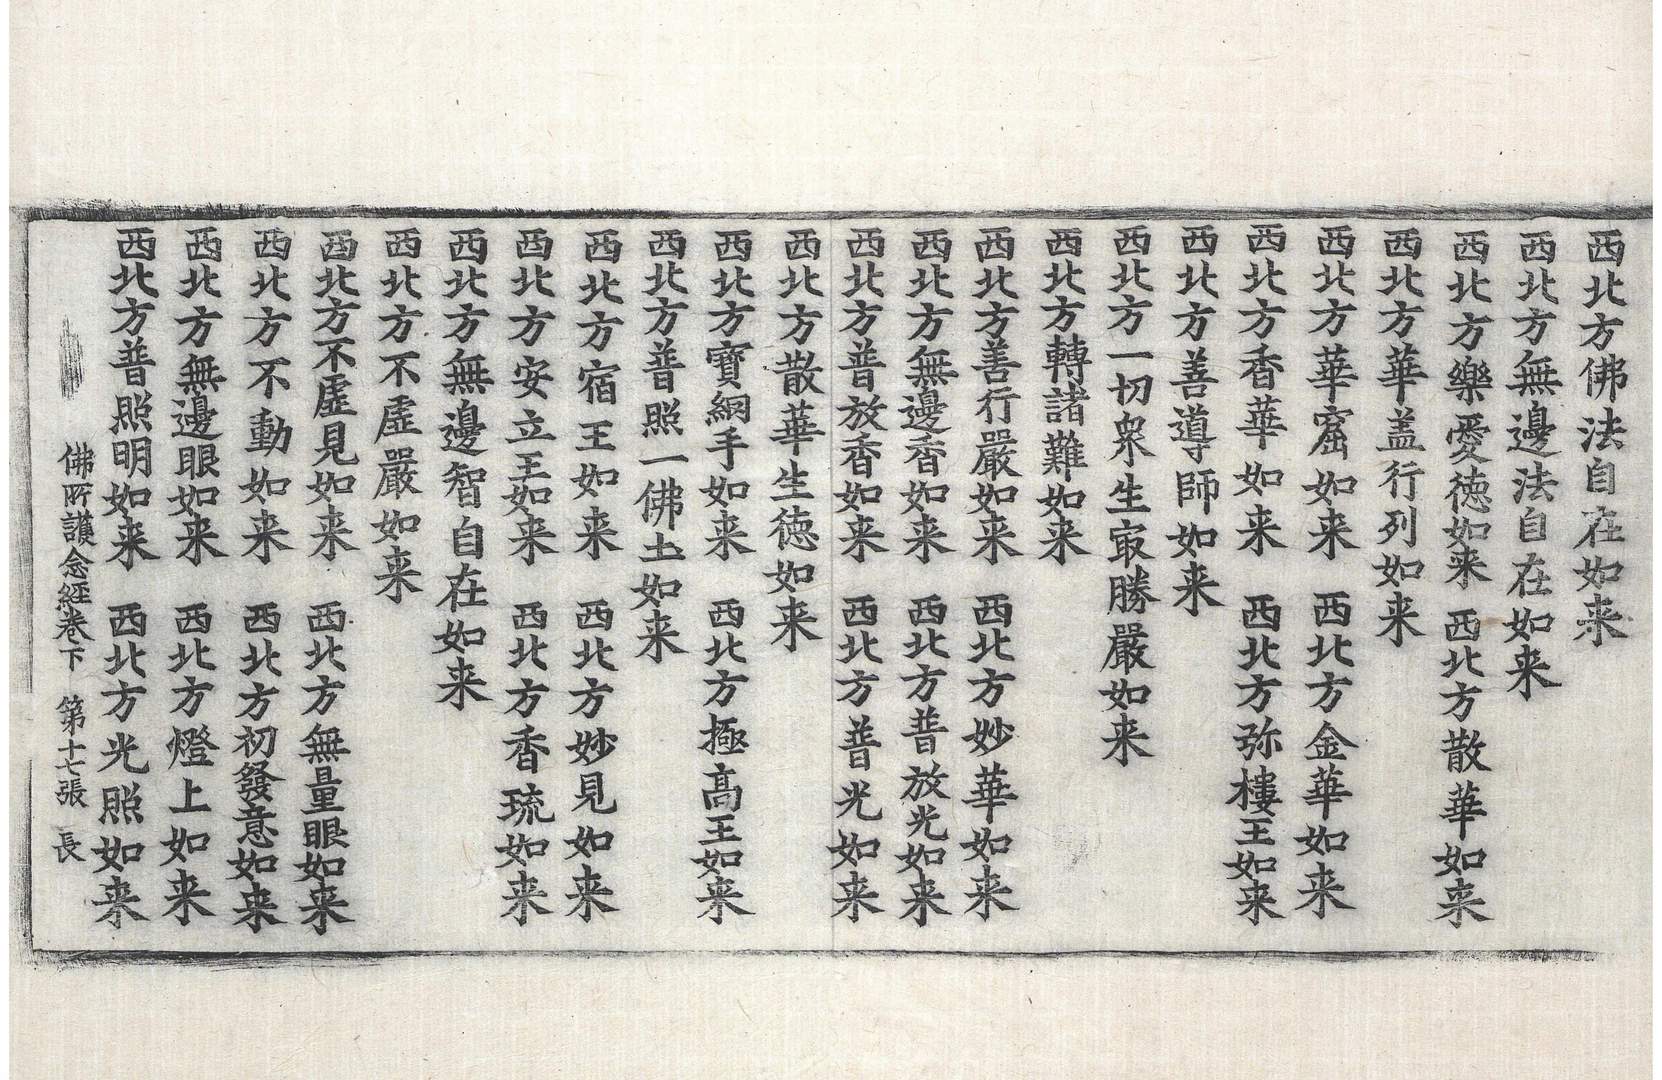 西北方佛法自在如来
西北方無邊法自在如来
西北方樂愛德如来　西北方散華如来
西北方華盖行列如来
西北方華窟如来　西北方金華如来
西北方香華如来　西北方弥樓王如来
西北方善導師如来
西北方一切衆生㝡勝嚴如来
西北方轉諸難如来
西北方善行嚴如来　西北方妙華如来
西北方無邊香如来　西北方普放光如来
西北方普放香如来　西北方普光如来
西北方散華生德如来
西北方寶網手如来　西北方極髙王如来
西北方普照一佛土如来
西北方宿王如来　西北方妙見如来
西北方安立王如来　西北方香琉如来
西北方無邊智自在如来
西北方不虛嚴如来
西北方不虛見如来　西北方無量眼如来
西北方不動如来　西北方初發意如来
西北方無邊眼如来　西北方燈上如来
西北方普照明如来　西北方光照如来
佛所護念經卷下　第十七張　長